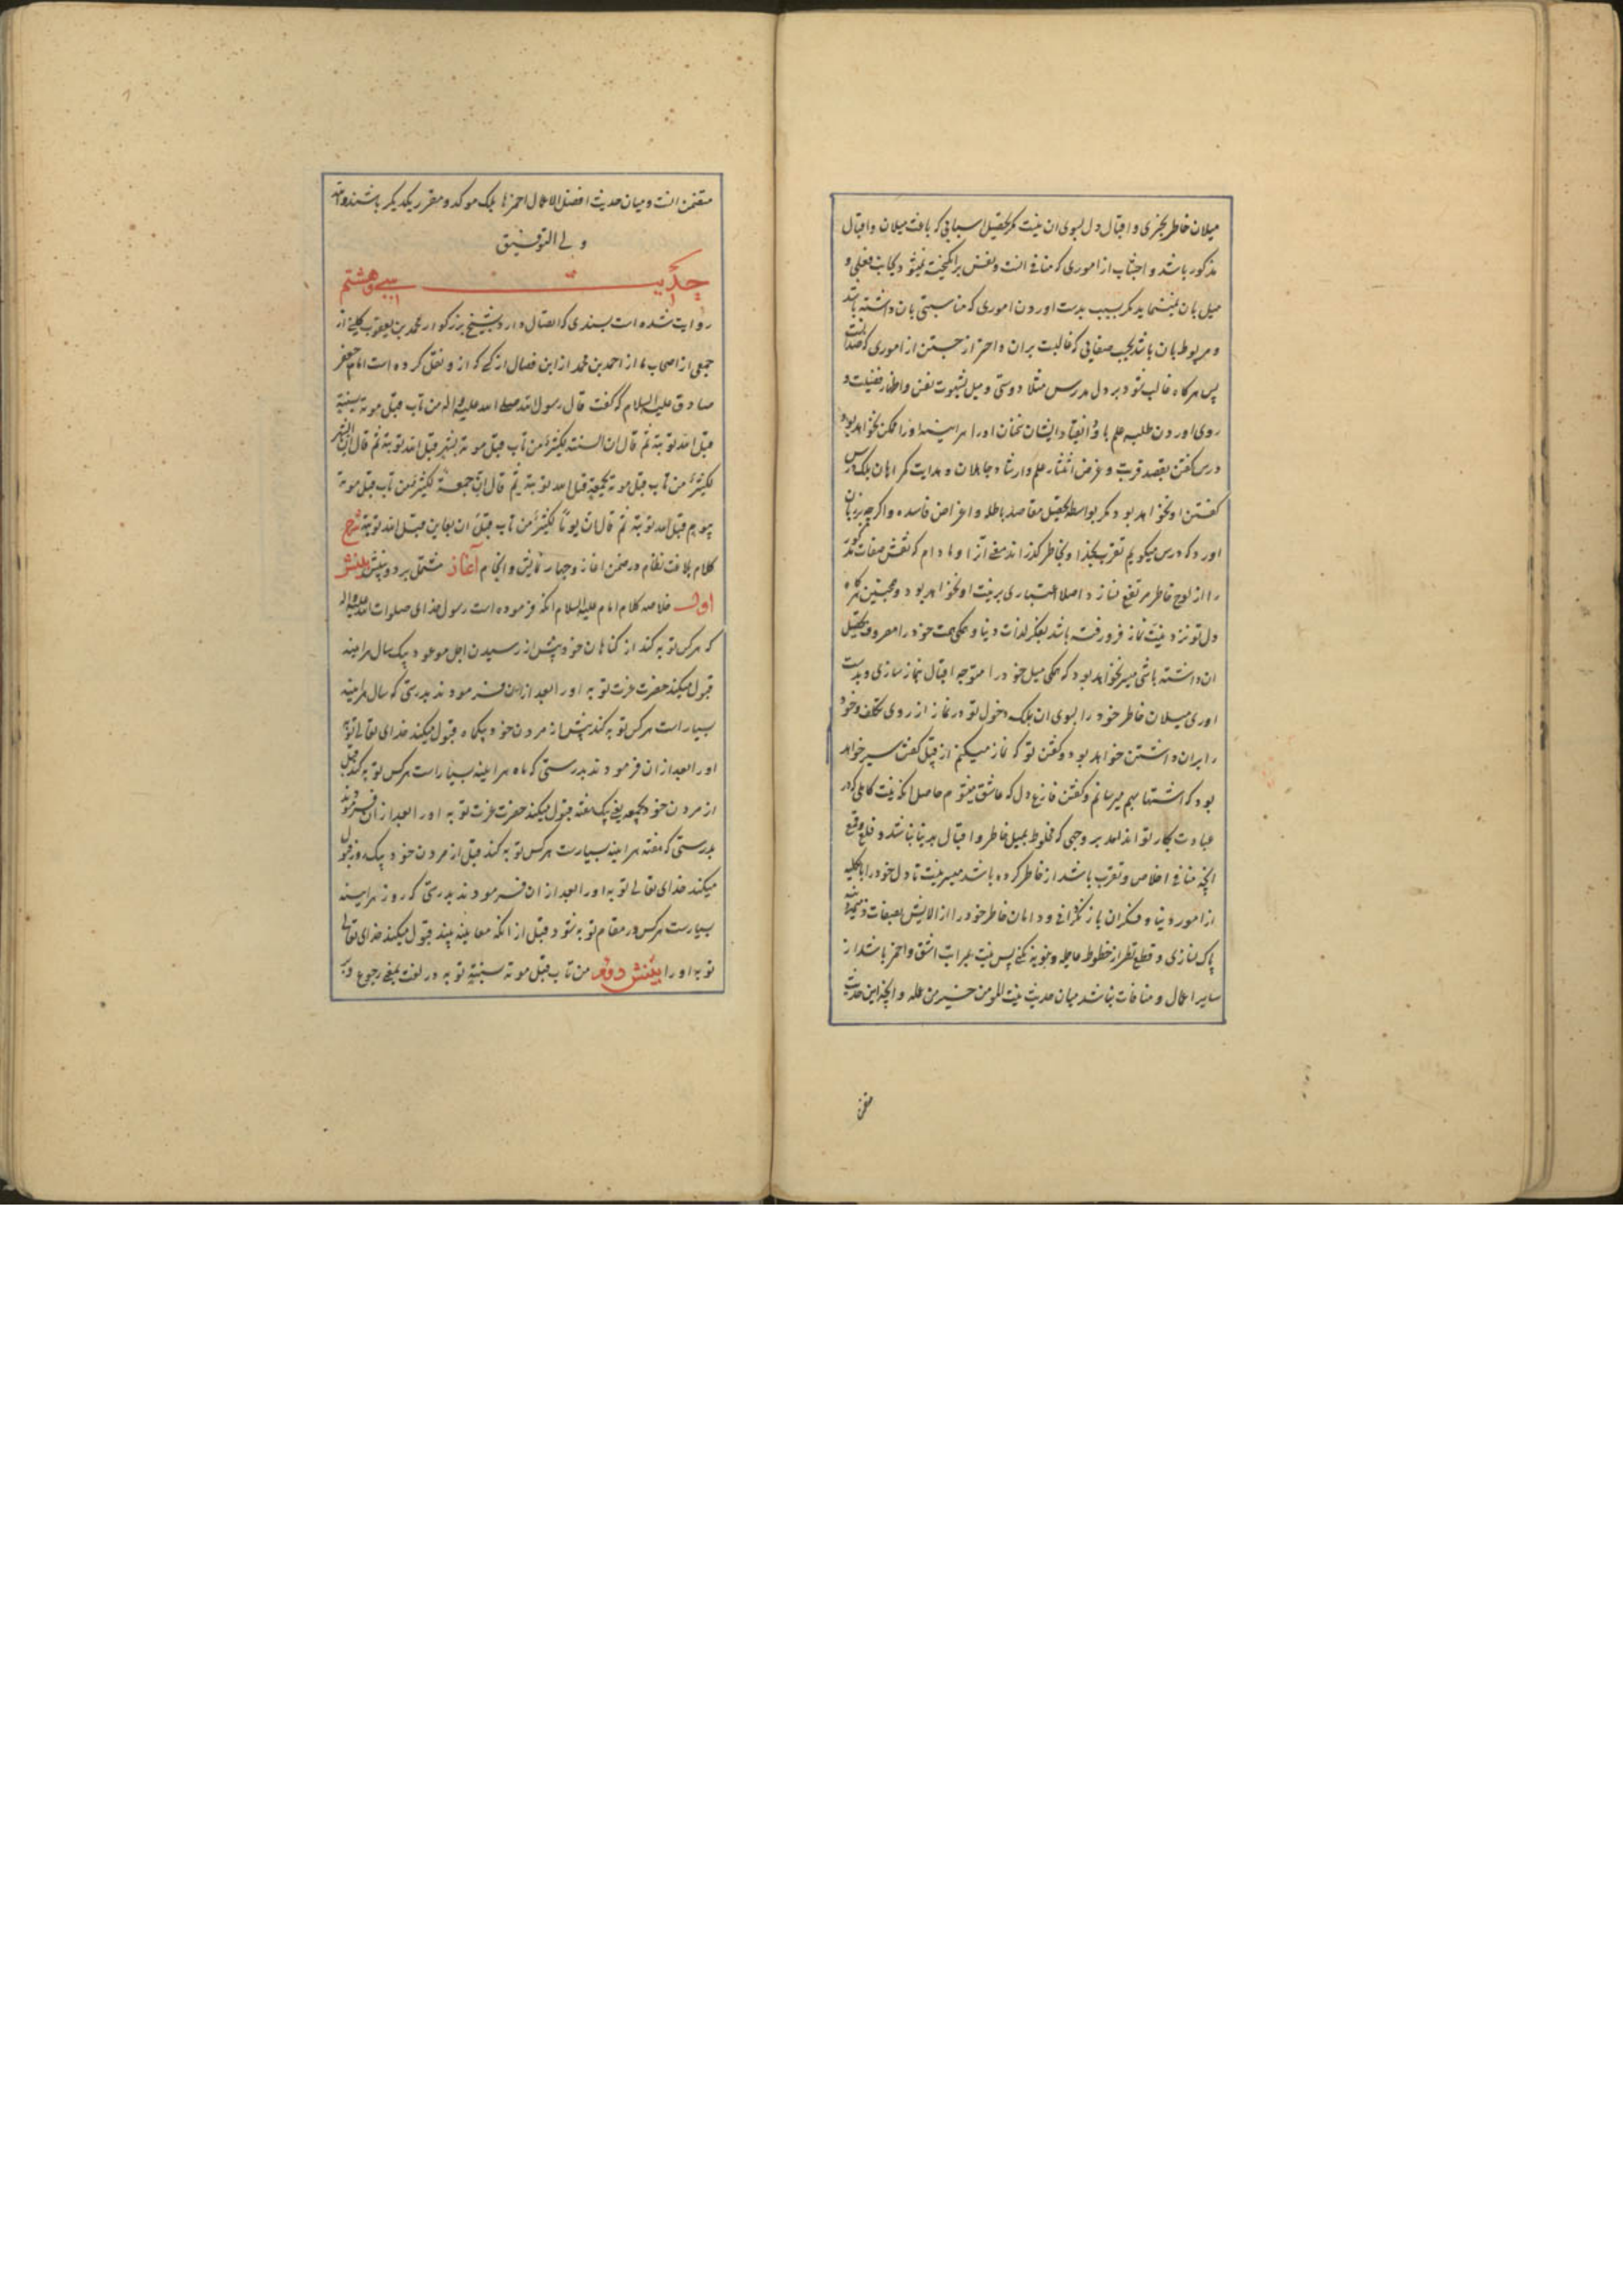 میلان خاطر بچیزی و اقبال دل بسوی ان نیست مکر تحصیل اسبابی که باعث میلان و اقبال
مذکور باشد و اجتناب از اموری که منافی انست و نفس برانکیخته نمیشود بجانب فعلی و
میل بان نمینماید مکر بسبب بدست اوردن اموری که مناسبتی بان داشته باشد
و مربوط بان باشد بحسب صفاتی که غالبست بران و احتراز جستن از اموری که ضد انست
پس هرکاه غالب شود بر دل مدرس مثلا دوستی و میل شهوت نفس و اظهار فضیلت و
روی اوردن طلبه علم باو و انقیاد ایشان سخنان او را هراینه او را ممکن نخواهد بود
درس کفتن بقصد قربت و غرض انتشار علم و ارشاد جاهلان و هدایت کمراهان بلکه درس
کفتن او نخواهد بود مکر بواسطه تحصیل مقاصد باطله و اغراض فاسده و اکرچه بزبان
اورد که درس میکویم تقرب بخدا و بخاطر کذراند معنی آنرا و مادام که نقش صفات مذکوره
را از لوح خاطر مرتفع نسازد اصلا اعتباری بر نیت او نخواهد بود و همچنین هرکاه
دل تو نزد نیت نماز فرو رفته باشد بفکر لذات دنیا و همکی همت خود را مصروف تحصیل
ان داشته باشی میسر نخواهد بود که همکی میل خود را متوجه اقبال نماز سازی و بدست
اوری میلان خاطر خود را بسوی ان بلکه دخول تو در نماز از روی تکلف و خود
را بران داشتن خواهد بود و کفتن تو که نماز میکنم از قبیل کفتن سیر خواهد
بود که اشتها بهم میرسانم و کفتن فارغ دل که عاشق میشوم حاصل انکه نیت کاملی که در
عبادت بکار تو اند امد بر وجهی که مخلوط بمیل خاطر و اقبال بدنیا نباشد و قلع و قمع
انچه منافی اخلاص و تقرب باشد از خاطر کرده باشد میسر نیست تا دل خود را بالکلیه
از امور دنیا و فکر ان باز نکردانی و دامان خاطر خود را از الایش بصفات ذمیمه
پاک نسازی و قطع نظر از حظوظ عاجله دنیویه نکنی پس نیت بمراتب اشق و احمز باشد از
سایر اعمال و منافات نباشد میان حدیث نیت المومن خیر من عمله و انچه این حدیث
متضمن
متضمن انست و میان حدیث افضل الاعمال احمزها بلکه موکد و مقرر یکدیکر باشند و الله
ولی التوفیق
حدیث سی و هشتم
روایت شده است بسندی که اتصال دارد بشیخ بزرکوار محمد بن یعقوب کلینی از
جمعی از اصحاب ما از احمد بن محمد از ابن فضال از کسی که از و نقل کرده است امام جعفر
صادق علیه السلام که کفت قال رسول الله صلی الله علیه واله من تاب قبل موته بسنة
قبل الله توبته ثم قال ان السنت لکثیرة من تاب قبل موته بشهر قبل الله توبته ثم قال ان الشهر
لکثیر من تاب قبل موته بجمعة قبل الله توبته ثم قال ان جمعة لکثیر من تاب قبل موته
بیوم قبل الله توبته ثم قال ان یوما لکثیر من تاب قبل ان یعاین قبل الله توبته شرح
کلام بلاغت نظام در ضمن اغاز و چهار نمایش و انجام آغاز مشتمل بر دو بینش بینش
اول خلاصه کلام امام علیه السلام انکه فرموده است رسول خدای صلوات الله علیه واله
که هرکس توبه کند از کناهان خود پیش از رسیدن اجل موعود بیک سال هراینه
قبول میکند حضرت عزت توبه او را بعد از ان فرمودند بدرستی که سال هراینه
بسیار است هرکس توبه کند پیش از مردن خود بیکماه قبول میکند خدای تعالی توبه
او را بعد از ان فرمودند بدرستی که ماه هراینه بسیار است هرکس توبه کند قبل
از مردن خود بجمعه یعنی یک هفته قبول میکند حضرت عزت توبه او را بعد از ان فرمودند
بدرستی که هفته هراینه بسیارست هرکس توبه کند قبل از مردن خود بیک روز قبول
میکند خدای تعالی توبه او را بعد از ان فرمودند بدرستی که روز هراینه
بسیارست هرکس در مقام توبه شود قبل از انکه معاینه بیند قبول میکند خدای تعالی
توبه او را بینش دوم من تاب قبل موته بسنة توبه در لغت بمعنی رجوع